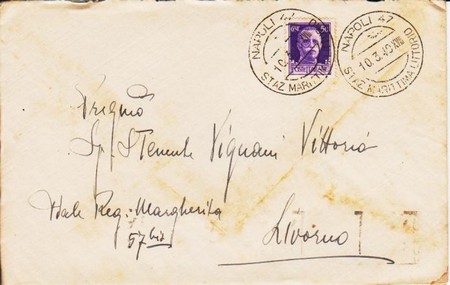 NAPOLI 47
STAZ. MARITTIMA
NAPOLI 47 DIRITTORIO
10.3.40 XVIII
STAZ. MARITTIMA
Sig. S. Tenente Vignani Vittorio
Viale Reg. Margherita
57 bis
Livorno
T